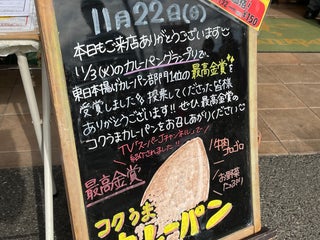 11月22日(水)
本日もご来店ありがとうございます
11/3(火)のカレーパングランプリ
東日本揚げカレーパン部門1位の最高金賞を
受賞しました。投票してくださった皆様
ありがとうございます!!ぜひ、最高金賞の
コクうまカレーパンをお召しあがりください
TV「スーパーJチャンネル」で
紹介されました!!
最高金賞
牛肉
ゴロゴロ
お野菜
たっぷり
コクうま
カレーパン